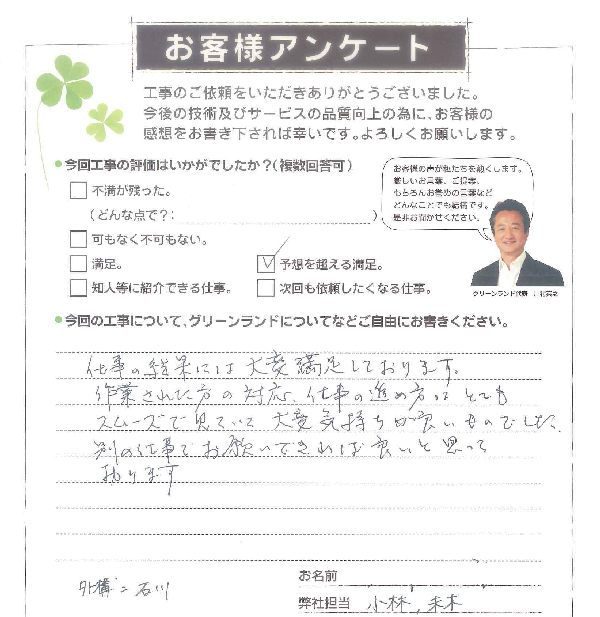 お客様アンケート
工事のご依頼をいただきありがとうございました。
今後の技術及びサービスの品質向上の為に、お客様の
感想をお書き下されば幸いです。よろしくお願いします。
●今回工事の評価はいかがでしたか?(複数回答可)
不満が残った。
(どんな点で?: )
可もなく不可もない。
満足。
予想を超える満足。
知人等に紹介できる仕事。
次回も依頼したくなる仕事。
お客様の声が私たちを動くします。
厳しいお言葉、ご提案、
もちろんお褒めの言葉など
どんなことでも結構です。
是非お聞かせください。
グリーンランド代表
●今回の工事について、グリーンランドについてなどご自由にお書きください。
仕事の結果には大変満足しております。
作業された方の対応、仕事の進め方はとても
スムーズで見ていて大変気持ちが良いものでした。
別の仕事でお願いできれば良いと思って
おります
外構=石川
お名前
弊社担当 小林,末木